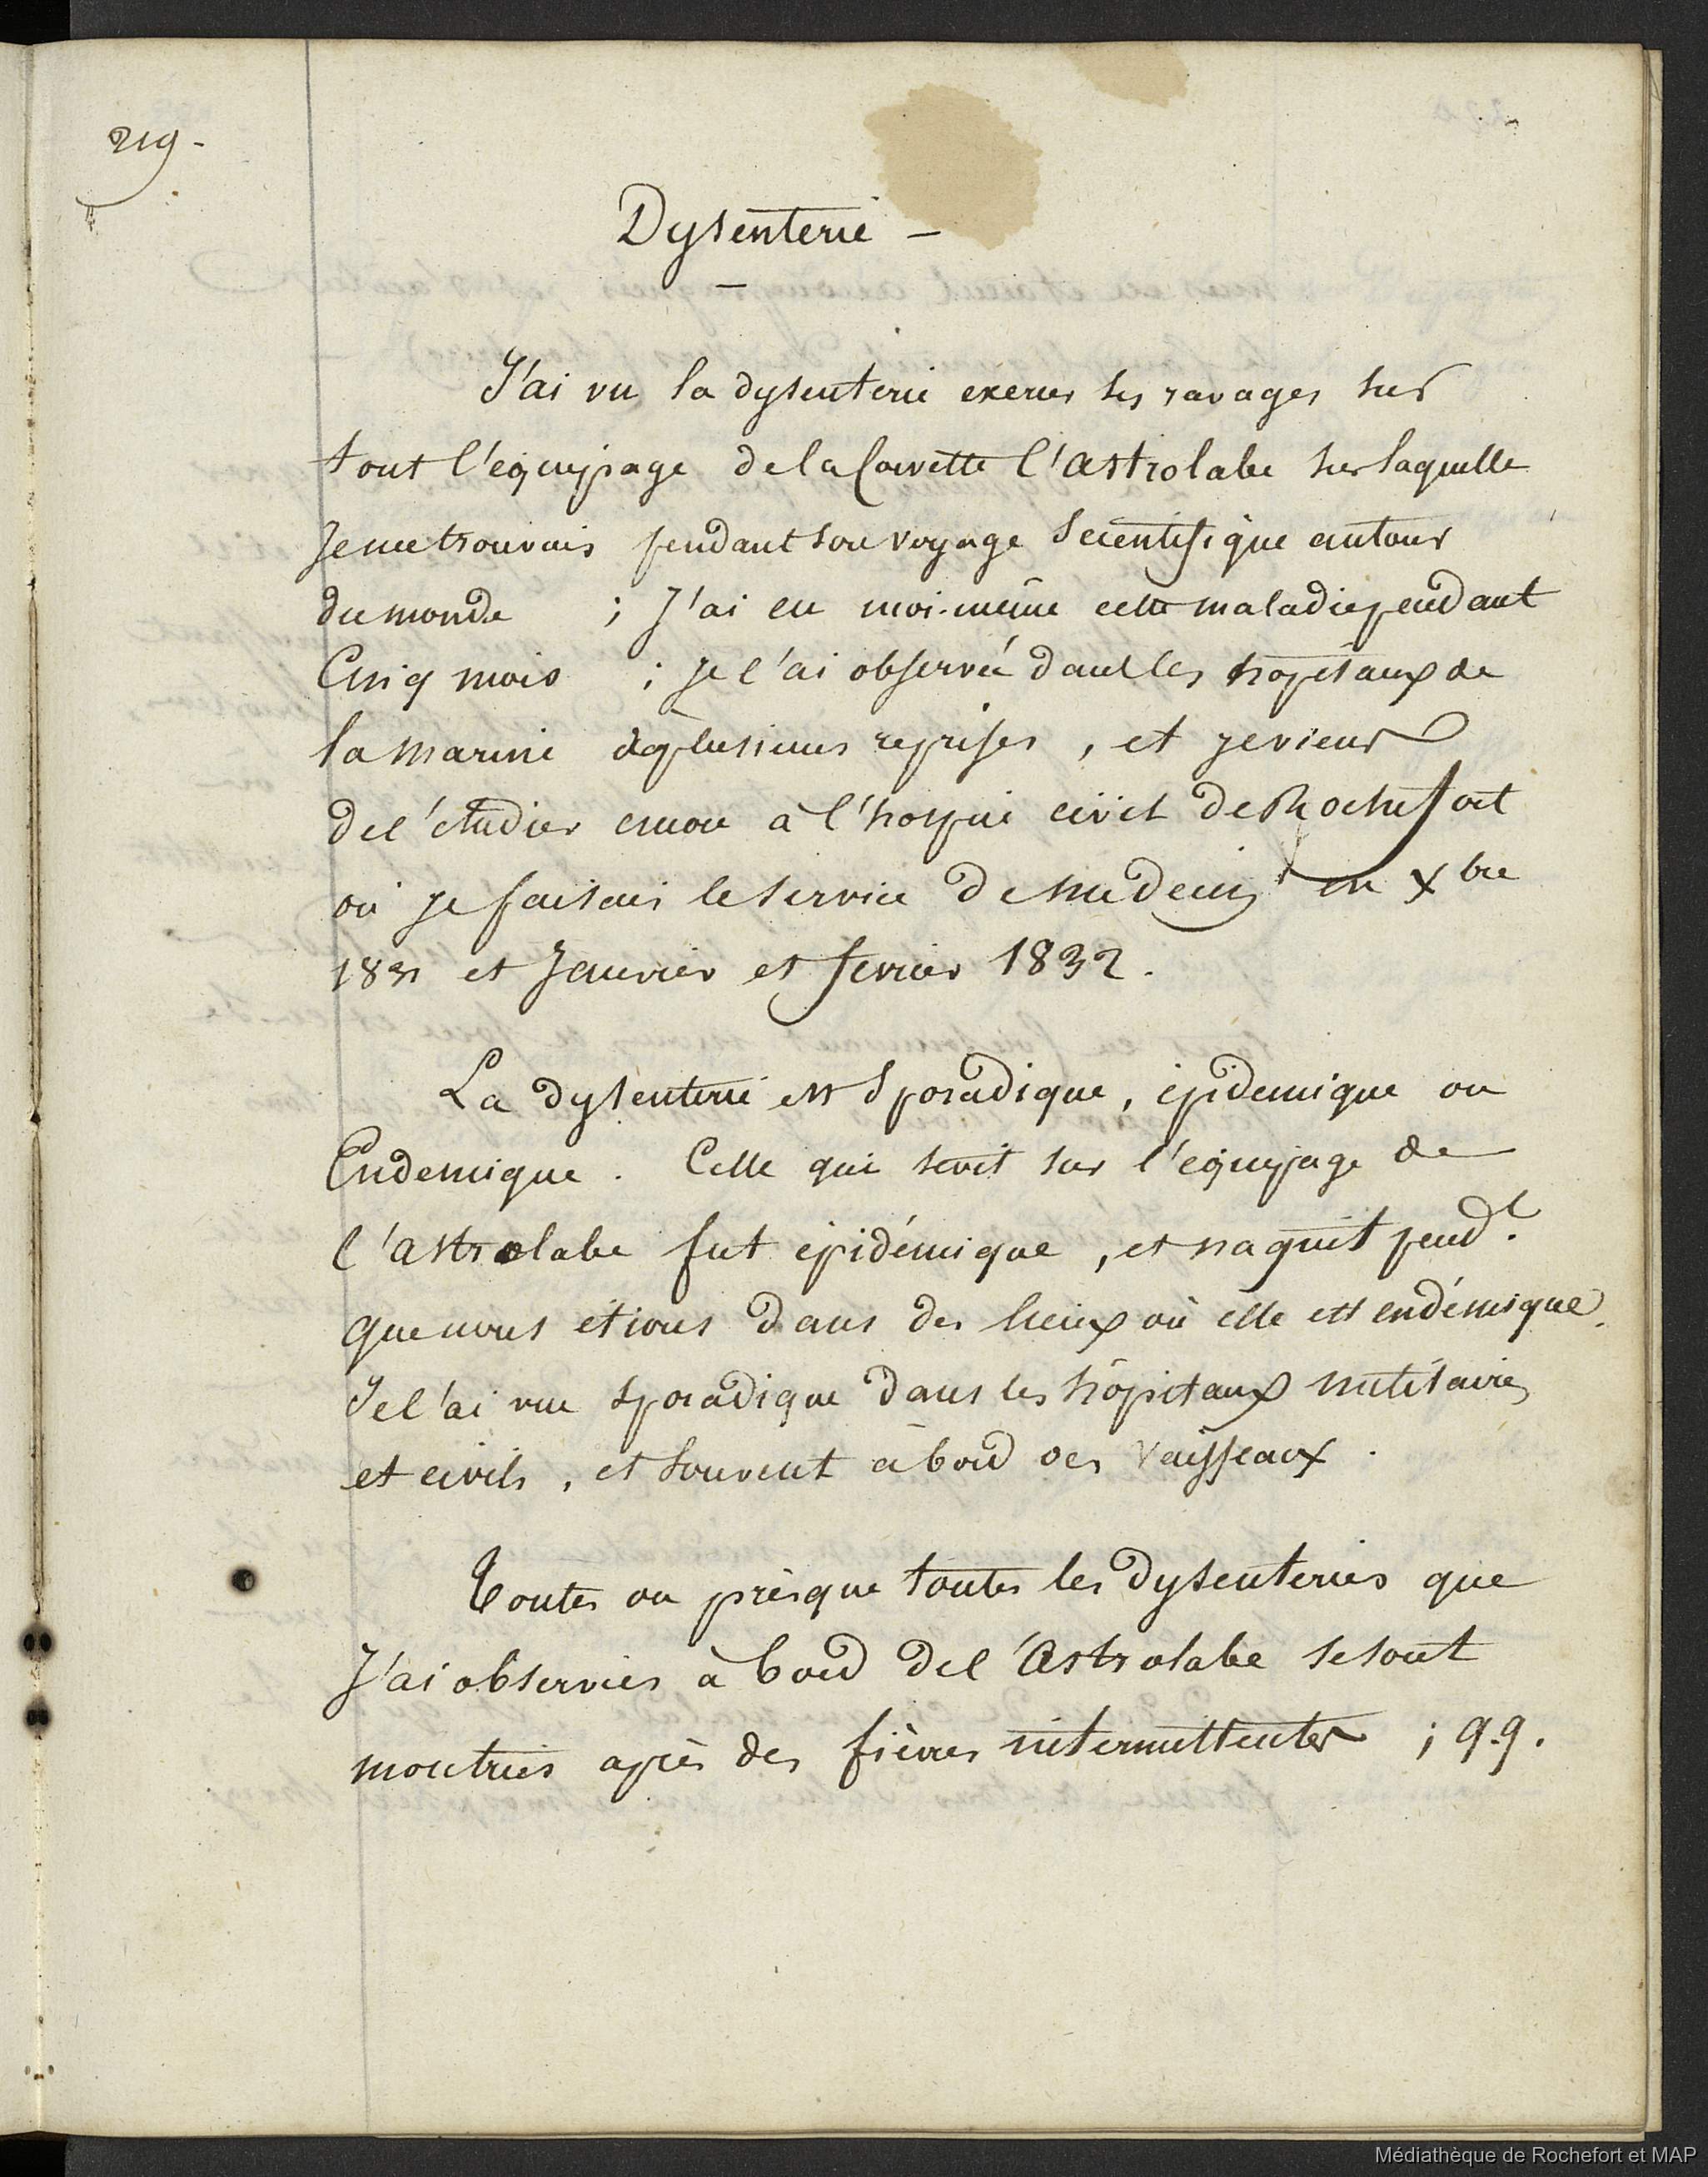 219-
Dysenterie -
J'ai vu la dysenterie exercer ses ravages sur
tout l'équipage de la Corvette l'astrolabe sur laquelle
Je me trouvais pendant son voyage Scientifique autour
du monde ; J'ai eu moi-même cette maladie pendant
Cinq mois ; Je l'ai observée dans les hopitaux de
la marine à plusieurs reprises, et je viens
de l'étudier encore à l'hospice civil de Rochefort
où je faisais le service de médecin en Xbre
1831 et Janvier et fevrier 1832.
La dysenterie est Sporadique, épidemique ou
Endemique. Celle qui sevit sur l'équipage de
l'astrolabe fut épidémique, et naquit pendt.
que nous étions dans des lieux où elle est endémique.
Je l'ai vue sporadique dans les hôpitaux militaires
et civils, et souvent à bord des Vaisseaux.
Toutes ou presque toutes les dysenteries que
J'ai observées à bord de l'Astrolabe se sont
montrées après des fièvres intermittentes ; q.q.
Médiathèque de Rochefort et MAP